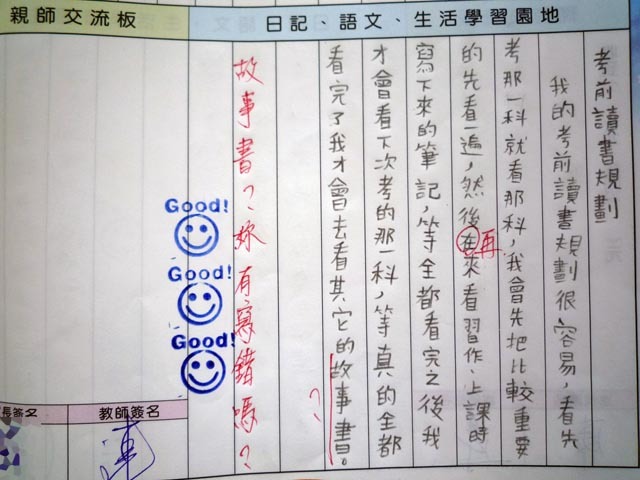 親師交流板
日記、語文、生活學習園地
考前讀書規劃
我的考前讀書規劃很容易，看先
考那一科就看那科，我會先把比較重要
的先看一遍，然後在來看習作、上課時
再
寫下來的筆記，等全都看完之後我
才會看下次考的那一科，等真的全都
看完了我才會去看其它的故事書。
?
故事書？妳有寫錯嗎？
Good!
Good!
Good!
教師簽名
長簽名